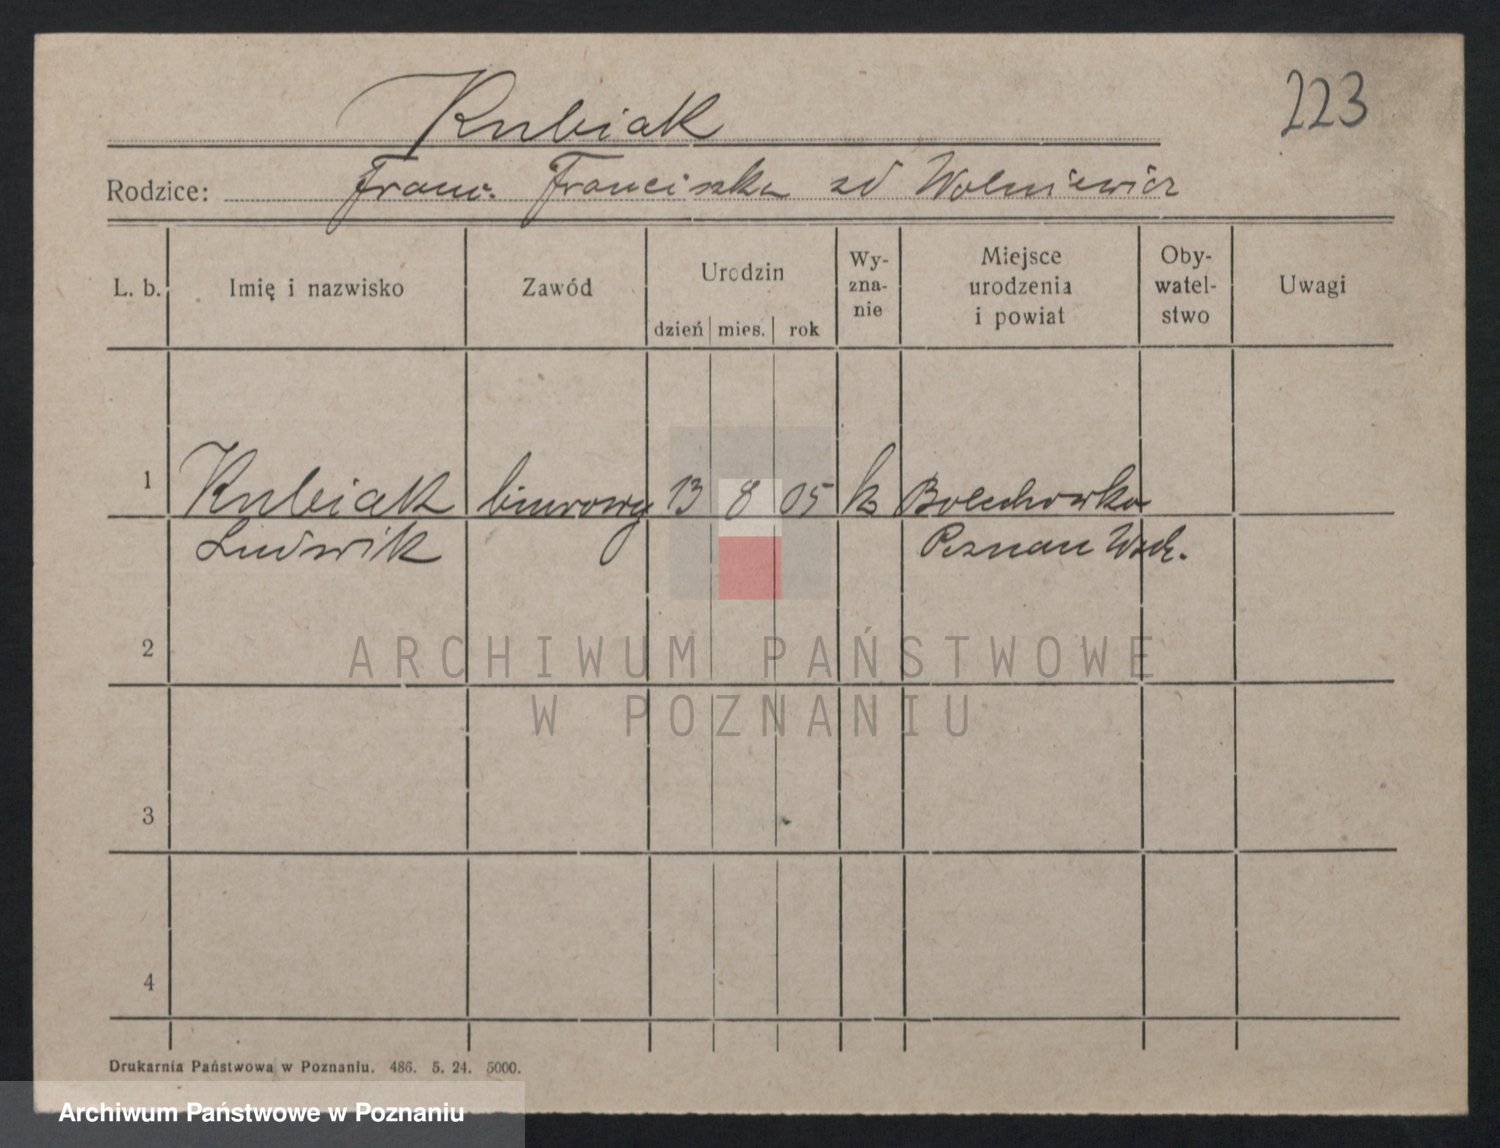 223
Kubiak
Rodzice: Franc. Franciszka zd Wolniewicz
L. b. Imię i nazwisko Zawód Urodzin dzień mies. rok Wy-zna-nie Miejsce urodzenia i powiat Oby-watel-stwo Uwagi
1 Kubiak biurowy 13 8 05 k Bolechowko
Ludwik Poznan Wsch.
2
3
4
Drukarnia Państwowa w Poznaniu. 486. 5. 24. 5000.
ARCHIWUM PAŃSTWOWE
W POZNANIU
Archiwum Państwowe w Poznaniu